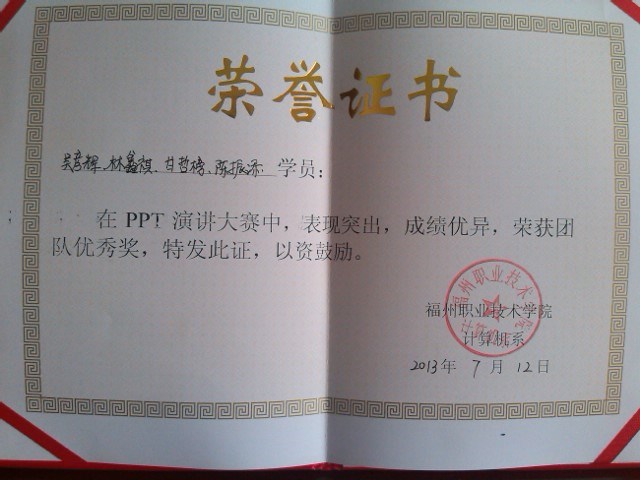 荣誉证书
吴彦辉、林鑫祺、甘哲榜、陈振添 学员：
在 PPT 演讲大赛中，表现突出，成绩优异，荣获团
队优秀奖，特发此证，以资鼓励。
福州职业技术学院
计算机系
2013年 7 月 12日
福州职业技术学院